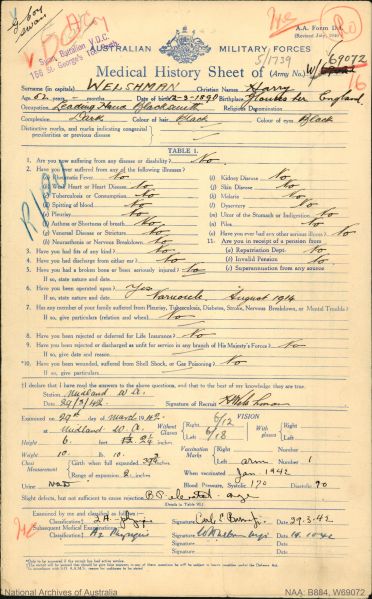 A.A. Form D.1
AUSTRALIAN MILITARY FORCES
Swan Battalion V.D.C.
156 St. George's Terrace
5/1739
Medical History Sheet of (Army No.) W/ 69072
Surname (in capitals) WELSHMAN Christian Names Harry
Age 52 years - months Date of birth 12-3-1890 Birthplace Gloucester England
Occupation Leading Hand Blacksmith Religious Denomination
Complexion Dark Colour of hair Black Colour of eyes Black
Distinctive marks, and marks indicating congenital
peculiarities or previous disease
TABLE 1.
1. Are you now suffering from any disease or disability? No
2. Have you ever suffered from any of the following illnesses?
Rheumatic Fever No (i) Kidney Disease No
Heart or Heart Disease No (j) Skin Disease No
Tuberculosis or Consumption No (k) Malaria No
Spitting of Blood No (l) Dysentery No
(e) Pleurisy No (m) Ulcer of the Stomach or Indigestion No
(f) Asthma or Shortness of breath No (n) Piles No
(g) Venereal Disease or Stricture No Have you ever had any other serious illness? No
(h) Neurasthenia or Nervous Breakdown No 11. Are you in receipt of a pension from
3. Have you had fits of any kind? No (a) Repatriation Dept. No
4. Have you had discharge from either ear? No (b) Invalid Pension No
5. Have you had a broken bone or been seriously injured? No (c) Superannuation from any source
If so, state nature and date
6. Have you been operated upon? Yes
If so, state nature and date Varicocele August 1914
7. Has any member of your family suffered from Pleurisy, Tuberculosis, Diabetes, Stroke, Nervous Breakdown, or Mental Trouble?
If so, give particulars (relation and when) No
8. Have you been rejected or deferred for Life Insurance? No
9. Have you been rejected or discharged as unfit for service in any branch of His Majesty's Forces? No
If so, give date and reason
*10. Have you been wounded, suffered from Shell Shock, or Gas Poisoning? No
If so, give particulars
I declare that I have read the answers to the above questions, and to the best of my knowledge they are true.
Station Midland W.A.
Date 29/3/42 Signature of Recruit H Welshman
Examined on 29th day of March 1942 VISION
at Midland W.A. Without Glasses Right 6/12 With glasses Right
Left 6/18 Left
Height 6 ft. 2¼ in. Vaccination Marks Right
Weight 10 st. 10 Left arm Number 1
Chest Measurement Girth when full expanded 39½ When vaccinated Jan 1942
Range of expansion 2 inches Blood Pressure, Systolic 170 Diastolic 90
Urine NAD
Slight defects, but not sufficient to cause rejection B.P. elevated age
(Details in Table IV.)
Examined by me and classified as follows:—
Classification 2A Signature 29.3.42
Subsequent Medical Examinations
Classification Signature 14.10.42
National Archives of Australia NAA: B884, W69072